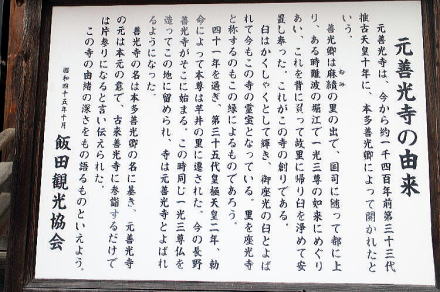 元善光寺の由来
元善光寺は、今から約一千四百年前第三十三代
推古天皇十年に、本多善光卿によって開かれたと
いう。
善光卿は麻績の里の出で、国司に随って都に上
おみ
り、ある時難波の堀江で一光三尊の如来にめぐり
あい、これを背に負って故里に帰り臼を浄めて安
置し奉った。これがこの寺の創りである。
臼はかくしゃくとして輝き、御座光の臼とよば
れて今もこの寺の霊宝となっている。里を座光寺
と称するのもこの縁によるものであろう。
四十一年を過ぎ、第三十五代皇極天皇二年、勅
命によって本尊は芋井の里に遷された。今の長野
善光寺がそこに始まる。この時同じ一光三尊仏を
造ってこの地に留められ、寺は元善光寺とよばれ
るようになった。
善光寺の名は本多善光卿の名に基き、元善光寺
の元は本元の意で、古来善光寺に参詣するだけで
は片参りになると言い伝えられた。
この寺の由緒の深さをもの語るものといえよう。
昭和四十五年十月
飯田観光協会